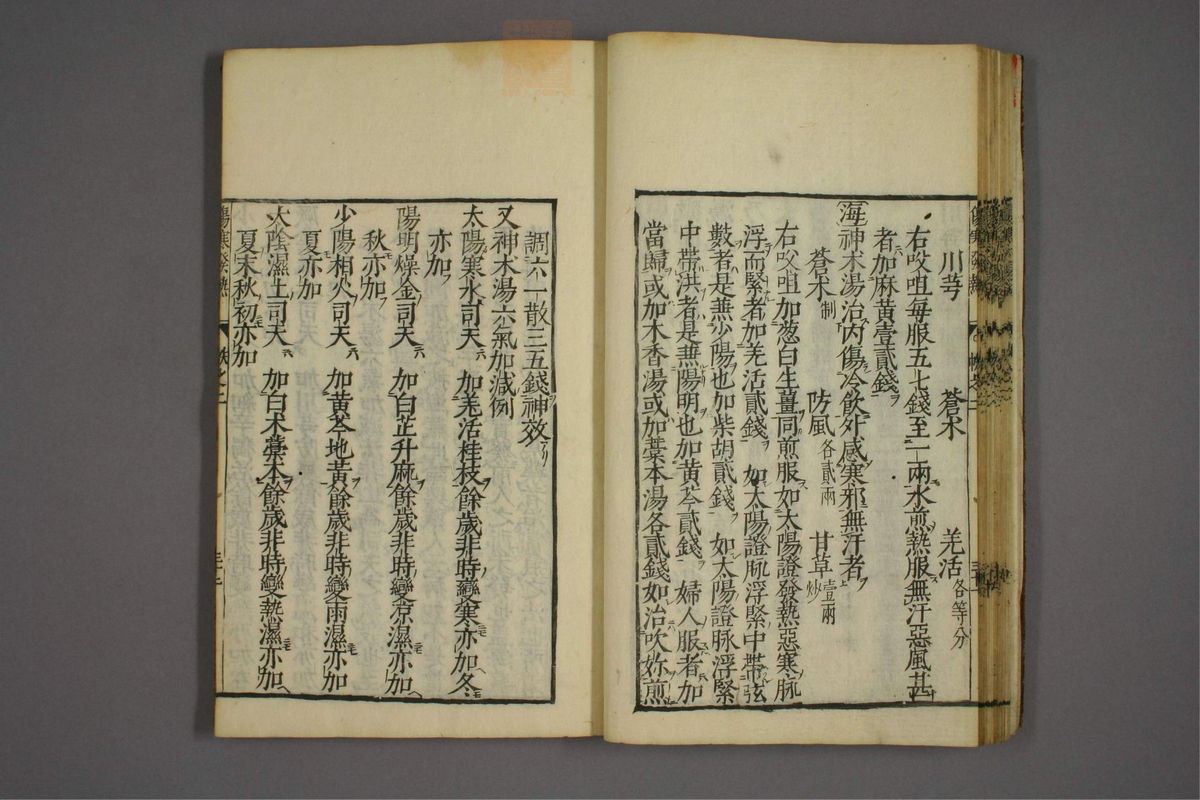 川芎 蒼朮 羌活各等分
右㕮咀毎服五七錢至一兩水煎熱服無汗惡風甚
者加麻黄壹貳錢
海神朮湯治内傷冷飲外感寒邪無汗者
蒼朮制 防風各貳兩 甘草壹兩炒
右㕮咀加葱白生薑同煎服如太陽證發熱惡寒脉
浮而緊者加羌活貳錢 如太陽證脉浮緊中帶弦
數者是兼少陽也加柴胡貳錢 如太陽證脉浮緊
中帶洪者是兼陽明也加黄芩貳錢 婦人服者加
當歸或加木香湯或加藁本湯各貳錢如治吹妳煎
調六一散三五錢神效
又神朮湯六氣加減例
太陽寒水司天 加羌活桂枝餘歲非時變寒亦加冬
亦加
陽明燥金司天 加白芷升麻餘歲非時變凉濕亦加
秋亦加
少陽相火司天 加黄芩地黄餘歲非時變雨濕亦加
夏亦加
太陰濕土司天 加白朮藁本餘歲非時變熱濕亦加
夏末秋初亦加
傷寒發熱